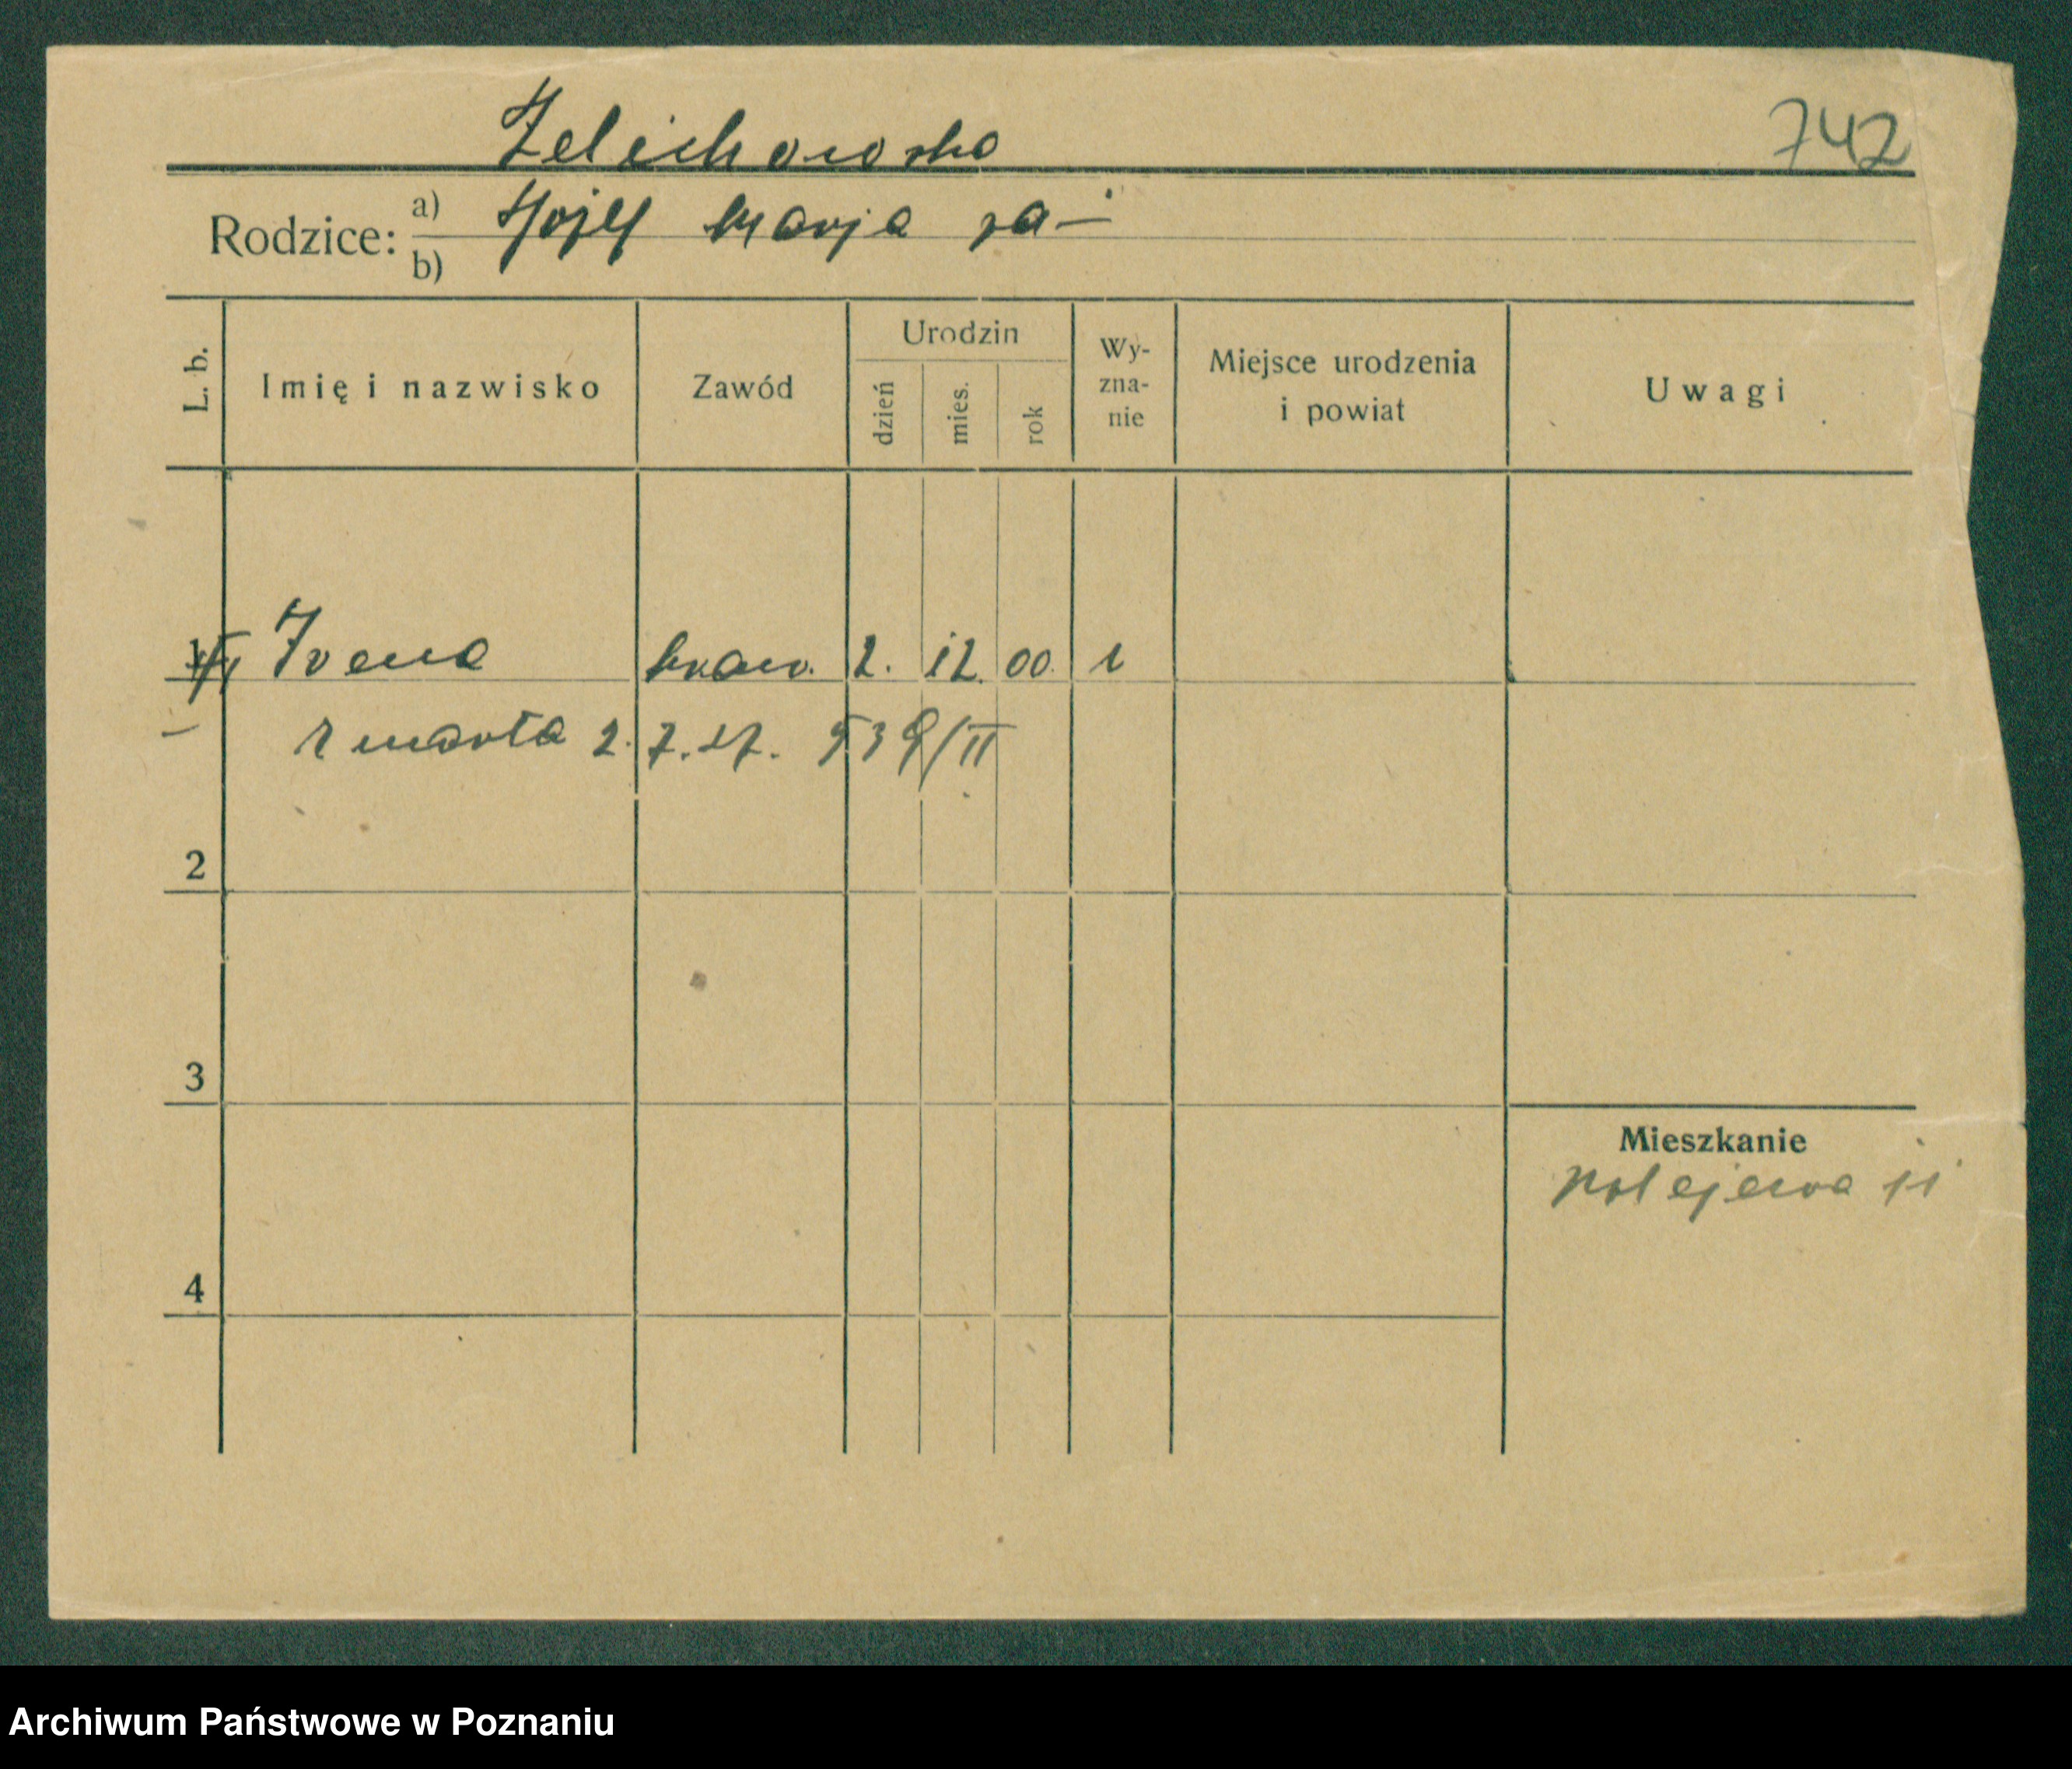 Żelichowska
742
Rodzice: a) Józef Marja
b)
L. b.
Imię i nazwisko
Zawód
Urodzin
dzień
mies.
rok
Wy-
zna-
nie
Miejsce urodzenia
i powiat
Uwagi
1 Irena kraw. 2. 12. 00.
zmarła 2.7.27. 539/II
2
3
Mieszkanie
4
Archiwum Państwowe w Poznaniu